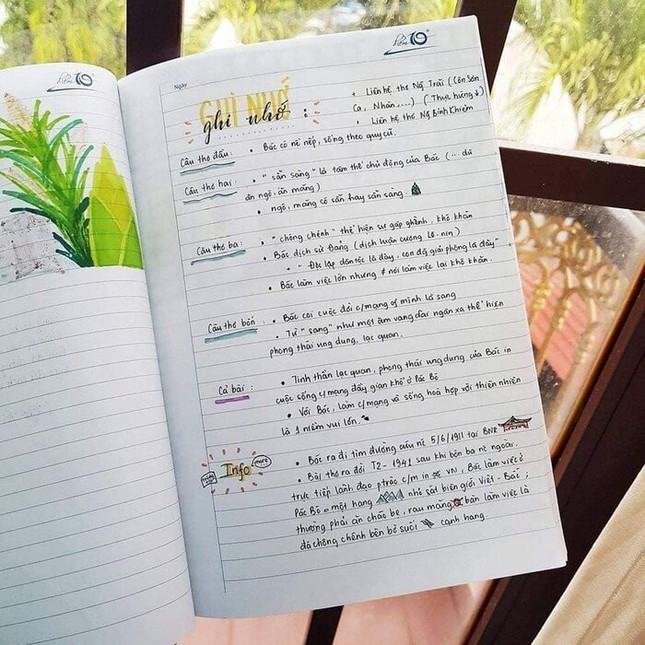 Ngày
GHI NHỚ
ghi nhớ :
• Liên hệ thơ Ng̃ Trãi (Côn Sơn
Ca, Nhàn,...) (Thuật hứng
• Liên hệ thơ Ng̃ Bỉnh Khiêm
Câu thơ đầu : • Bác có nề nếp, sống theo quy củ.
Câu thơ hai : • "sẵn sàng" là tâm thế chủ động của Bác (... dù
ăn ngô, ăn măng)
• ngô, măng có sẵn hay sẵn sàng
Câu thơ ba : • "chông chênh" thể hiện sự gập ghềnh, khó khăn
• Bác dịch sử Đảng (dịch luận cương Lê-nin)
"Độc lập dân tộc là đây, con đg̀ giải phóng là đây"
• Bác làm việc lớn nhưng nơi làm việc lại khó khăn.
Câu thơ bốn : • Bác coi cuộc đời c/mạng of mình là sang
• Từ "sang" như một âm vang đọng ngân xa thể hiện
phong thái ung dung, lạc quan.
Cả bài : • Tinh thần lạc quan, phong thái ung dung của Bác in
cuộc sống c/mạng đầy gian khổ ở Pác Bó
• Với Bác, làm c/mạng và sống hoà hợp với thiên nhiên
là 1 niềm vui lớn.
Info more
• Bác ra đi tìm đường cứu nc 5/6/1911 tại BNR
• Bài thơ ra đời T2-1941 sau khi bôn ba nc ngoài,
trực tiếp lãnh đạo ptrào c/m in VN, Bác làm việc ở
Pác Bó = một hang nhỏ sát biên giới Việt - Bắc ;
thường phải ăn cháo bẹ, rau măng bàn làm việc là
đá chông chênh bên bờ suối cạnh hang.